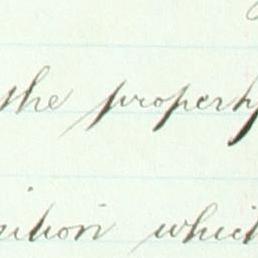 the property
ition which